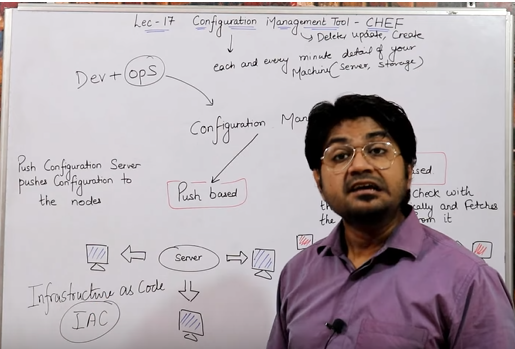 Lec-17 Configuration Management Tool - CHEF
Delete, update, Create
each and every minute detail of your
Machine (Server, Storage)
Dev + ops
Configuration
Push Configuration Server
pushes Configuration to
the nodes
Push based
ased
Check with
cally and Fetches
the
om it
Server
Infrastructure as Code
IAC